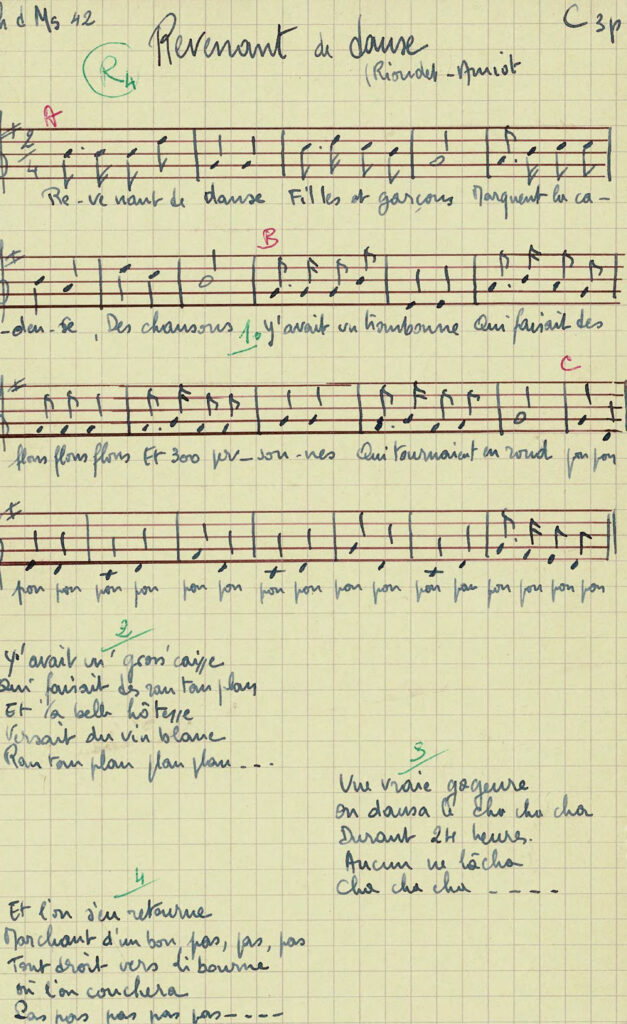 h d Ms 42
C 3p
Revenant de danse
R4
(Rioudet - Amiot
A
2
4
Re-ve nant de danse Filles et garçons Marquent la ca-
B
-den-se, Des chansons 1. Y'avait un trombonne Qui faisait des
C
flons flons flons Et 300 per-son-nes Qui tournaient en rond pon pon
pon pon pon pon pon pon pon pon pon pon pon pan pon pon pon pon
2
Y'avait un' gross' caisse
Qui faisait des ran tan plan
Et la belle hôtesse
Versait du vin blanc
Ran tan plan plan plan ....
3
Une vraie gageure
on dansa le cha cha cha
Durant 24 heures.
Aucun ne lâcha
Cha cha cha ----
4
Et l'on s'en retourne
Marchant d'un bon pas, pas, pas
Tout droit vers Libourne
où l'on couchera
Pas pas pas pas pas----